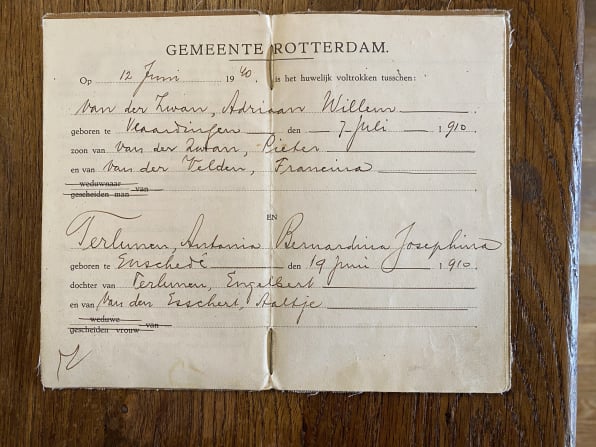 GEMEENTE ROTTERDAM.
Op 12 Juni 1940. is het huwelijk voltrokken tusschen:
van der Zwan, Adriaan Willem
geboren te Vlaardingen den 7 Juli 1910.
zoon van van der Zwan, Pieter
en van van der Velden, Francina
weduwnaar van
gescheiden man
EN
Terlunen, Antonia Bernardina Josephina
geboren te Enschedé den 19 Juni 1910.
dochter van Terlunen, Engelbert
en van Van den Esschert, Aaltje
weduwe van
gescheiden vrouw